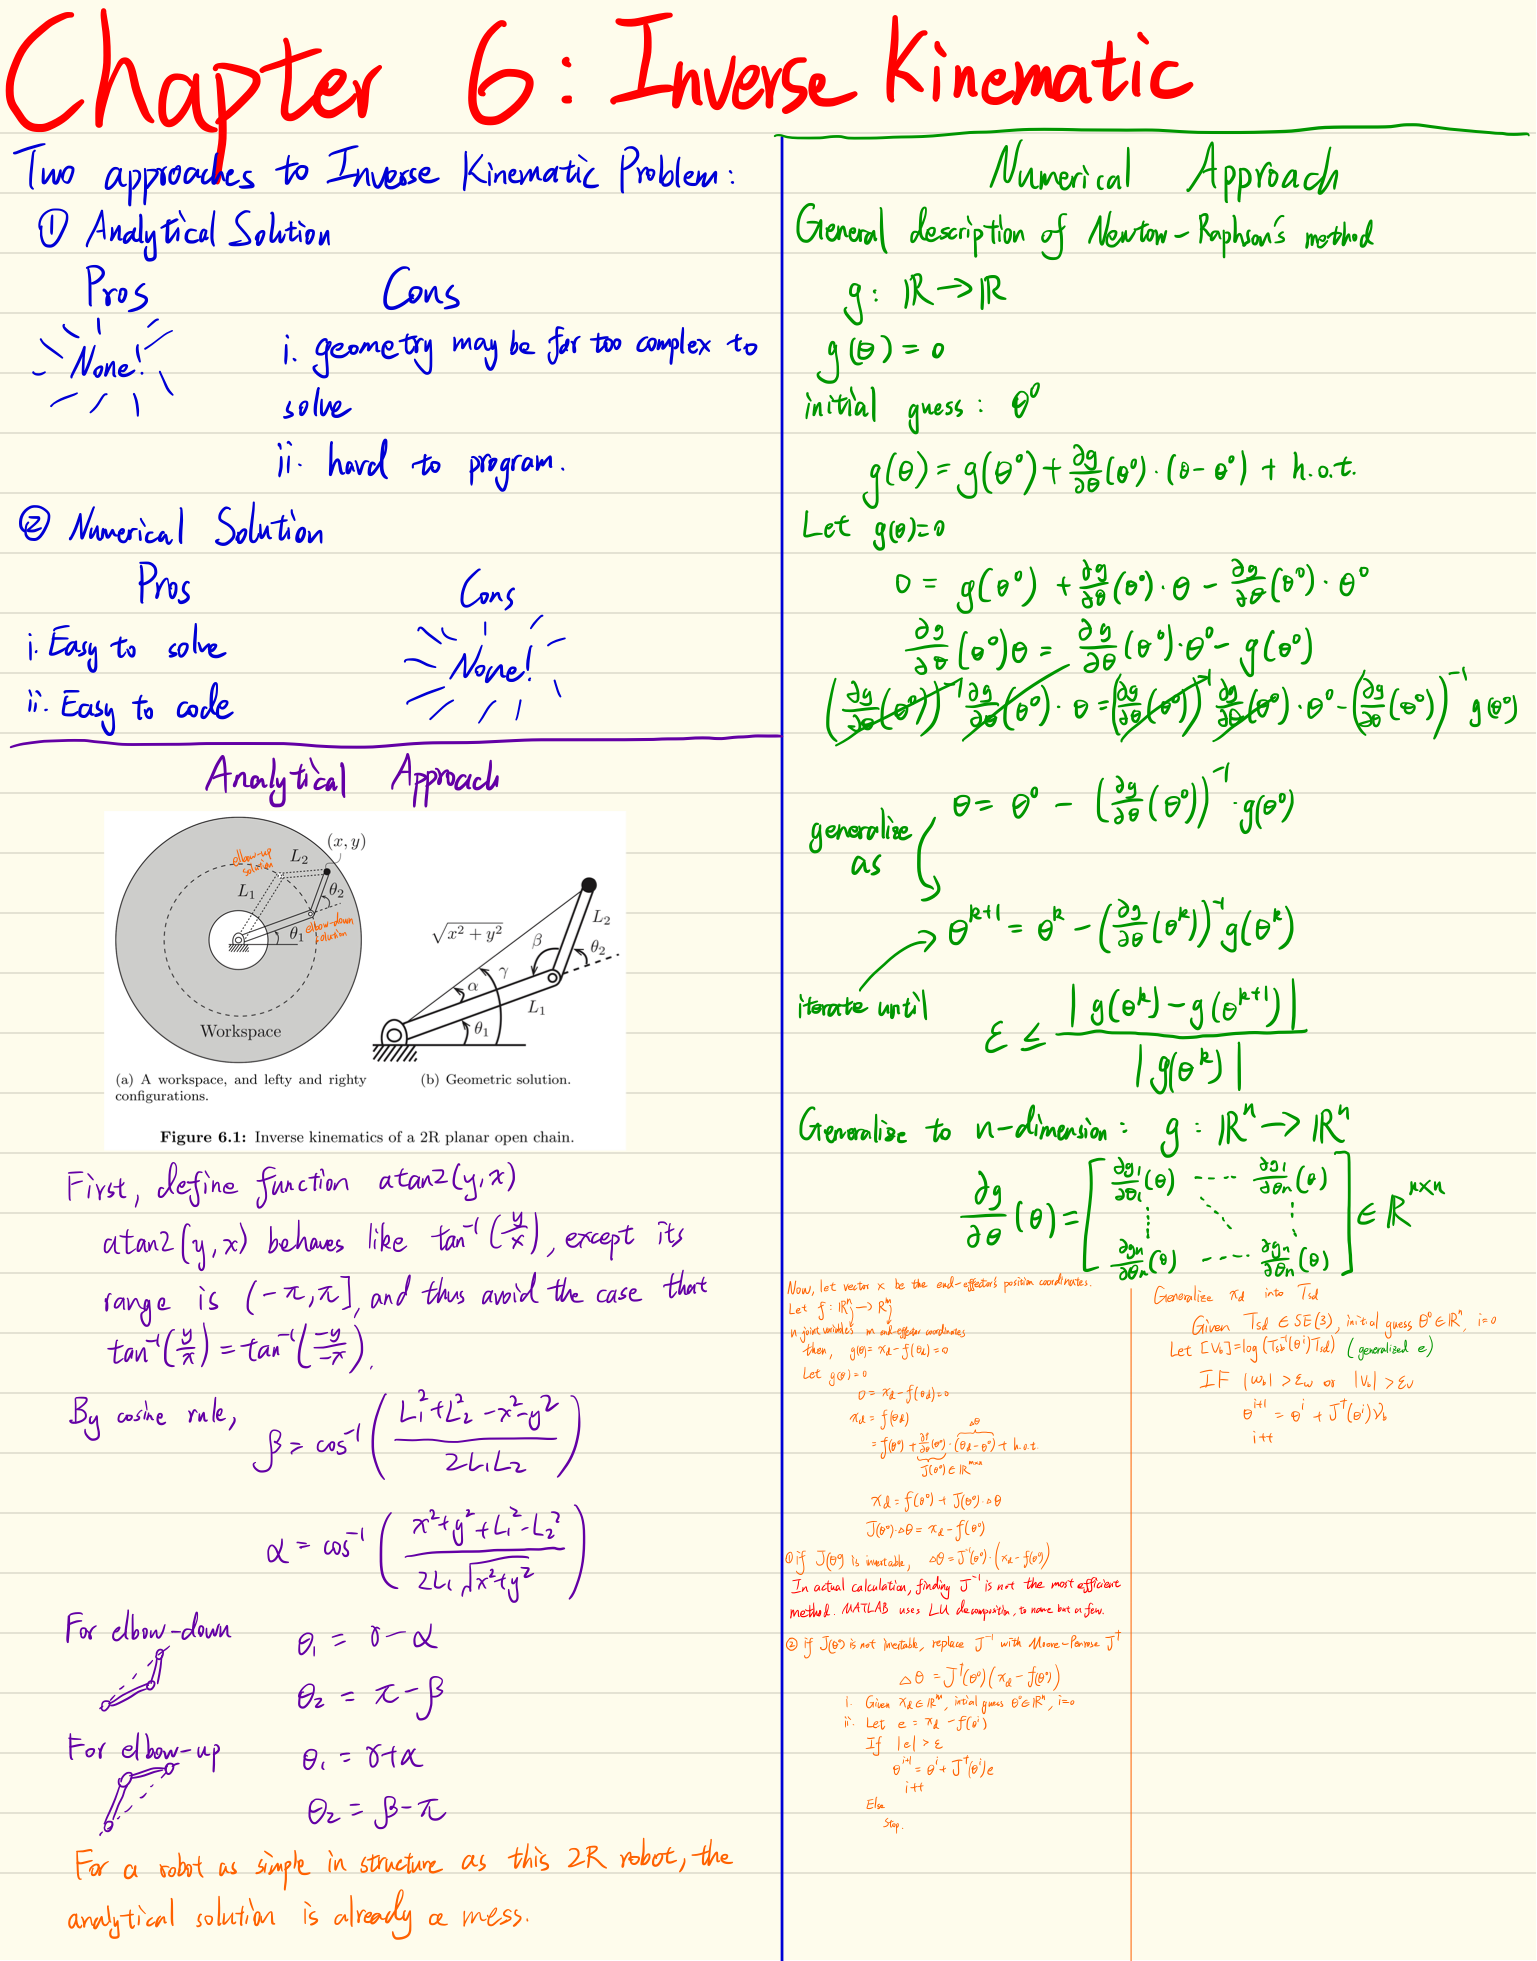 Chapter 6: Inverse Kinematic
Two approaches to Inverse Kinematic Problem:
① Analytical Solution
Pros
Cons
None!
i. geometry may be far too complex to
solve
ii. hard to program.
② Numerical Solution
Pros
Cons
i. Easy to solve
ii. Easy to code
None!
Analytical Approach
(x, y)
elbow-up
solution
L₂
L₁
θ₂
θ₁
elbow-down
solution
Workspace
√(x² + y²)
L₂
β
θ₂
γ
α
L₁
θ₁
(a) A workspace, and lefty and righty
configurations.
(b) Geometric solution.
Figure 6.1: Inverse kinematics of a 2R planar open chain.
First, define function atan2(y,x)
atan2(y,x) behaves like tan⁻¹(y/x), except its
range is (-π,π], and thus avoid the case that
tan⁻¹(y/x) = tan⁻¹(-y/-x).
By cosine rule,
β = cos⁻¹((L₁²+L₂²-x²-y²)/(2L₁L₂))
α = cos⁻¹((x²+y²+L₁²-L₂²)/(2L₁√(x²+y²)))
For elbow-down
θ₁ = γ-α
θ₂ = π-β
For elbow-up
θ₁ = γ+α
θ₂ = β-π
For a robot as simple in structure as this 2R robot, the
analytical solution is already a mess.
Numerical Approach
General description of Newton-Raphson's method
g: ℝ→ℝ
g(θ) = 0
initial guess: θ⁰
g(θ) = g(θ⁰) + ∂g/∂θ(θ⁰)·(θ-θ⁰) + h.o.t.
Let g(θ)=0
0 = g(θ⁰) + ∂g/∂θ(θ⁰)·θ - ∂g/∂θ(θ⁰)·θ⁰
∂g/∂θ(θ⁰)θ = ∂g/∂θ(θ⁰)·θ⁰ - g(θ⁰)
(∂g/∂θ(θ⁰))⁻¹ ∂g/∂θ(θ⁰)·θ = (∂g/∂θ(θ⁰))⁻¹ ∂g/∂θ(θ⁰)·θ⁰ - (∂g/∂θ(θ⁰))⁻¹ g(θ⁰)
θ = θ⁰ - (∂g/∂θ(θ⁰))⁻¹·g(θ⁰)
generalize
as
θᵏ⁺¹ = θᵏ - (∂g/∂θ(θᵏ))⁻¹g(θᵏ)
iterate until
ε ≤ |g(θᵏ) - g(θᵏ⁺¹)| / |g(θᵏ)|
Generalize to n-dimension: g: ℝⁿ→ℝⁿ
∂g/∂θ(θ) = [∂g₁/∂θ₁(θ) ---- ∂g₁/∂θₙ(θ)
∂gₙ/∂θₙ(θ) ---- ∂gₙ/∂θₙ(θ)] ∈ ℝⁿˣⁿ
Now, let vector x be the end-effector's position coordinates.
Let f: ℝⁿ→ℝᵐ
n joint variables m end-effector coordinates
then, g(θ) = x_d - f(θ_d) = 0
Let g(θ)=0
0 = x_d - f(θ_d) = 0
x_d = f(θ_d)
Δθ
= f(θ⁰) + ∂f/∂θ(θ⁰)·(θ_d-θ⁰) + h.o.t
J(θ⁰) ∈ ℝᵐˣⁿ
x_d = f(θ⁰) + J(θ⁰)·Δθ
J(θ⁰)·Δθ = x_d - f(θ⁰)
① if J(θ⁰) is invertable, Δθ = J⁻¹(θ⁰)·(x_d - f(θ⁰))
In actual calculation, finding J⁻¹ is not the most efficient
method. MATLAB uses LU decomposition, to name but a few.
② if J(θ⁰) is not invertable, replace J⁻¹ with Moore-Penrose J†
Δθ = J†(θ⁰)(x_d - f(θ⁰))
i. Given x_d ∈ ℝᵐ, intial guess θ⁰∈ℝⁿ, i=0
ii. Let e = x_d - f(θⁱ)
If |e| > ε
θⁱ⁺¹ = θⁱ + J†(θⁱ)e
i++
Else
Stop.
Generalize x_d into T_sd
Given T_sd ∈ SE(3), initial guess θ⁰∈ℝⁿ, i=0
Let [V_b] = log(T_sb⁻¹(θⁱ)T_sd) (generalized e)
IF |ω_b| > ε_ω or |v_b| > ε_v
θⁱ⁺¹ = θⁱ + J†(θⁱ)V_b
i++